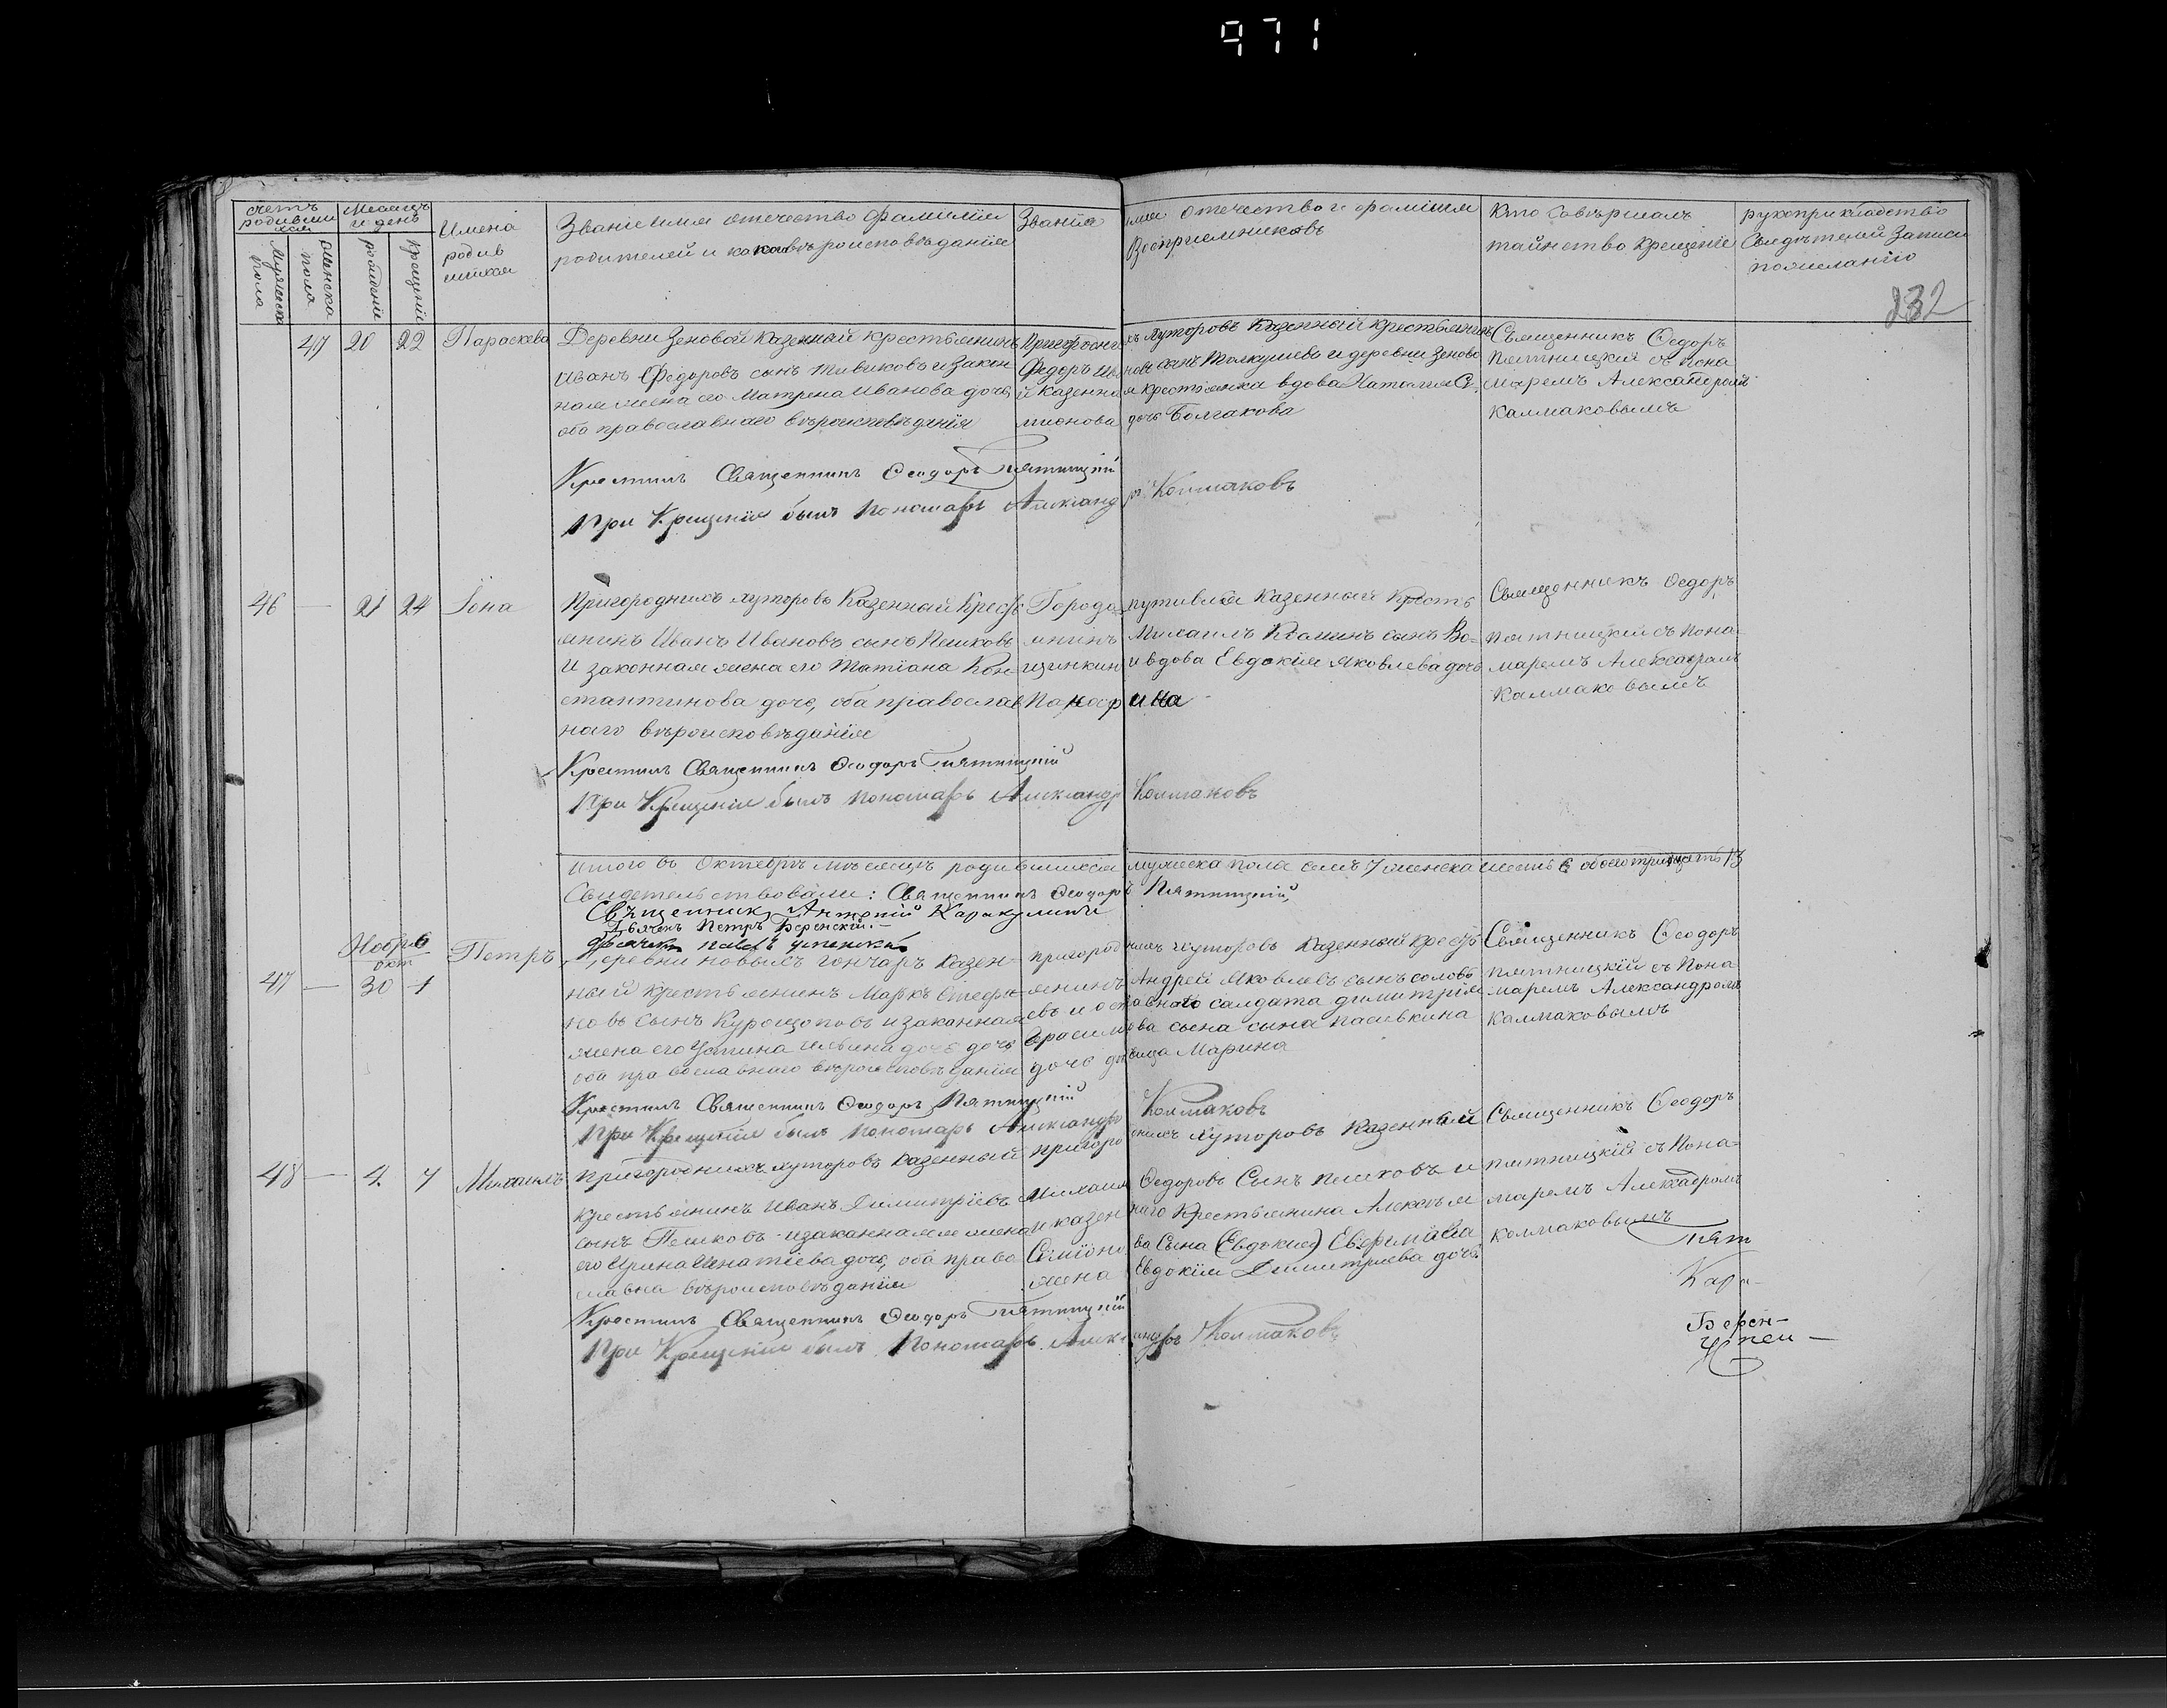 971
Счетъ родивши хся
Мужеска пола
Женска пола
Месяцъ и день
рождение
крещение
Имена родив шихся
Званiе имя отечество фамилiя
родителей и какова вѣроисповѣданiя
Званiя имя отечество и фамилiя
Воспрiемниковъ
Кто совършалъ
таинство крещенiе
рукоприкладство
Свидѣтелей записи
пожеланiю
232
47 20 22 Параскева
Деревни Зеновой казенный крестьянинъ
Иванъ Федоровъ сынъ Тивиковъ и закон
ная жена его Матрена Иванова дочь
оба православнаго вѣроисповѣданiя
Пригородныхъ хуторовъ казенный крестьянинъ
Федоръ Ивановъ сынъ Толкушевъ и деревни Зеново
й казенная крестьянка вдова Наталiя Си
мионова дочь Болгакова
Священникъ Федоръ
Пятницкiй съ пона
маремъ Александромъ
Калмаковымъ
Крестилъ Священникъ Феодоръ Пятницкiй
При Крещенiи былъ Пономарь Александръ Колмаковъ
46 — 21 24 Iона
Пригороднихъ хуторовъ Казенный Кресть
янинъ Иванъ Ивановъ сынъ Пешковъ
и законная жена его Татiана Кон
стантинова дочь, оба православ
наго вѣроисповѣданiя
Города путивля казенный кресть
янинъ Михаилъ сынъ Во=
щинкинъ и вдова Евдокiя Яковлева дочь
Священникъ Федоръ
Пятницкiй съ пона
маремъ Александромъ
Калмаковымъ
Крестилъ Священникъ Феодоръ Пятницкiй
При Крещенiи былъ пономарь Александръ Колмаковъ
Итого въ Октябрѣ мѣсяцѣ родившихся мужеска пола семь 7 женска шесть 6 обоего тринцать 13
Свидетельствовали: Священникъ Феодоръ Пятницкiй,
Священникъ Антонiй Каракулинъ
Дьячекъ Петръ Беренскiй.
Ноября 6
окт
47 — 30 1 Петръ
деревни новыхъ гончаръ казен=
ный крестьянинъ Маркъ Стефа
новъ сынъ Курощоповъ и законная
жена его Устина Ильина дочь дочь
оба православнаго вѣроисповѣданiя
пригородныхъ хуторовъ казенный кресть
янинъ Андрей Яковлевъ сынъ соловь
евъ и оставного салдата димитрiя
Герасимова сына сына пасивкина
дочь девица Марина
Священникъ Феодоръ
пятницкiй съ пона
маремъ Александромъ
Калмаковымъ
Крестилъ Священникъ Феодоръ Пятницкiй
При Крещенiи былъ Пономарь Александръ Колмаковъ
48 — 4 7 Михаилъ
Пригороднихъ хуторовъ казенный
крестьянинъ Иванъ Димитрiевъ
сынъ Пешковъ и законная жена
его Ирина Игнатiева дочь, оба право
славна вѣроисповѣданiя
пригороднихъ хуторовъ казенный
Михаилъ Федоровъ Сынъ Пешковъ и
и казеннаго крестьянина Алексѣя
Симiонова Сына (Евдокия)
жена Евдокiя Димитриева дочь
Священникъ Феодоръ
пятницкiй съ пона=
маремъ Александромъ
колмаковымъ
Крестилъ Священникъ Феодоръ Пятницкiй
При Крещенiи былъ Пономарь Александръ Колмаковъ
Пят
Кара-
Берен-
Успен-